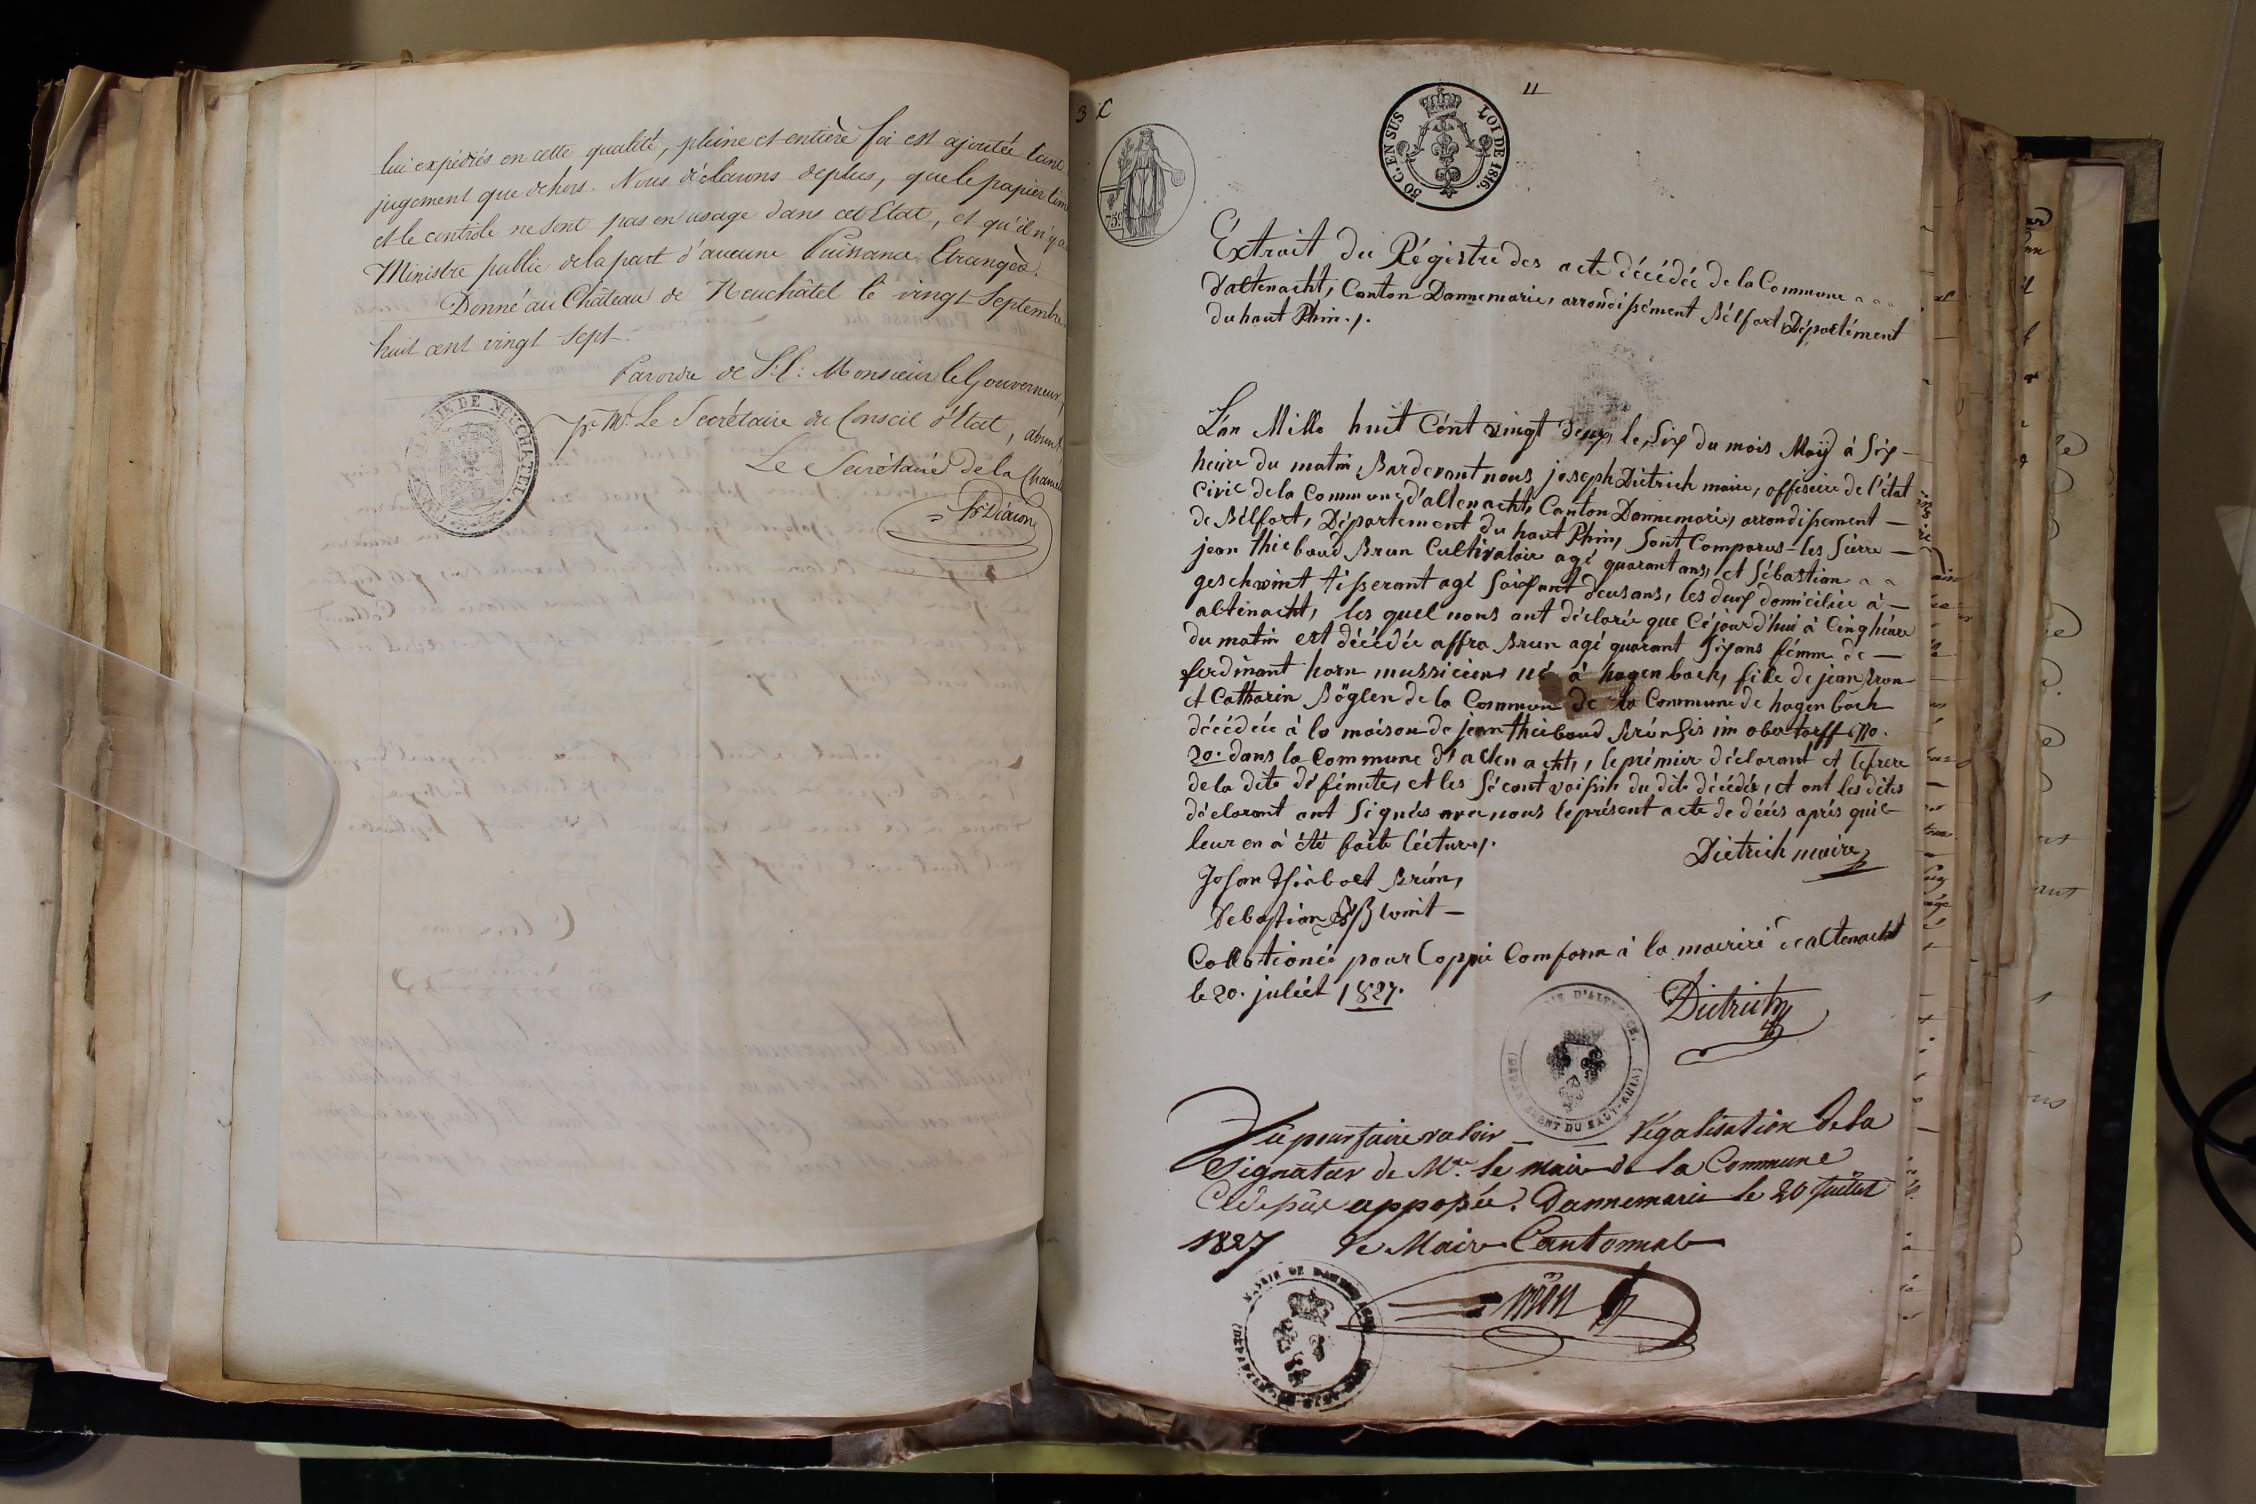 lui expédiés en cette qualité, pleine et entière foi est ajoutée tant
jugement que dehors. Nous déclarons deplus, que le papier tim
et le controle ne sont pas en usage dans cet Etat, et qu'il n'y a
Ministre public de la part d'aucune Puissance Etrangère.
Donné au Château de Neuchâtel le vingt Septembre
huit cent vingt sept.
Par ordre de S. E: Monsieur le Gouverneur,
pr. Mr. Le Secrétaire du Conseil d'Etat, absent,
Le Secrétaire de la Chancel
DE NEUCHATEL
3 C
11
75c
50 C. EN SUS
LOI DE 1816.
Extrait du Régistre des acte décédée de la Commune
d'altenacht, Canton Dannemarie, arrondissément Bélfort Départément
du haut Rhin./.
L'an Mille huit Cént vingt deux, le Six du mois Maÿ à Six
heure du matin Bardevant nous joseph Dietrich maire, offisiere de l'état
Civic de la Commune d'altenacht, Canton Dannemarie, arrondissement
de Bélfort, Département du haut Rhin, Sont Comparus les Sieurs
jean thiebaud Brun Cultivatair agé quarant ans, et Sébastian
geschwint tisserant agé Soixant deus ans, les deux domiciliée à
altenacht, les quel nous ont déclarée que Céjourd'hui à Cinq héure
du matin est décédée affra Brun agé quarant Six ans fémme de
ferdinant horn mussicien, né à hagenbach, fille de jean Brun
et Catharin Böglen de la Commune de la Commune de hagenbach
décédée à la maison de jean thiebaud Brún Sis im obertorff No.
20. dans la Commune d'altenacht, le prémier déclarant et le frere
de la dite défémte, et les Sécont voissin du dite décédée, et ont les dites
déclarant ont Signés avec nous le présent acte de décés aprés qu'il
leur en à été faite Lécture./.
Dietrich maire
Johan Thiebolt Brún,
Sebastian Gschwint
Collationée pour Coppie Comform à la mairiri d'altenacht
le 20. juliét 1827.
Dietrich
D'ALTENACH.
DU HAUT-RHIN
Vu pour faire valoir légalisation de la
Signatur de Mr. le maire de la Commune
Cidessus apposée. Dannemarie le 20 Juillet
1827 Le Maire Cantonnal
MAIRIE DE